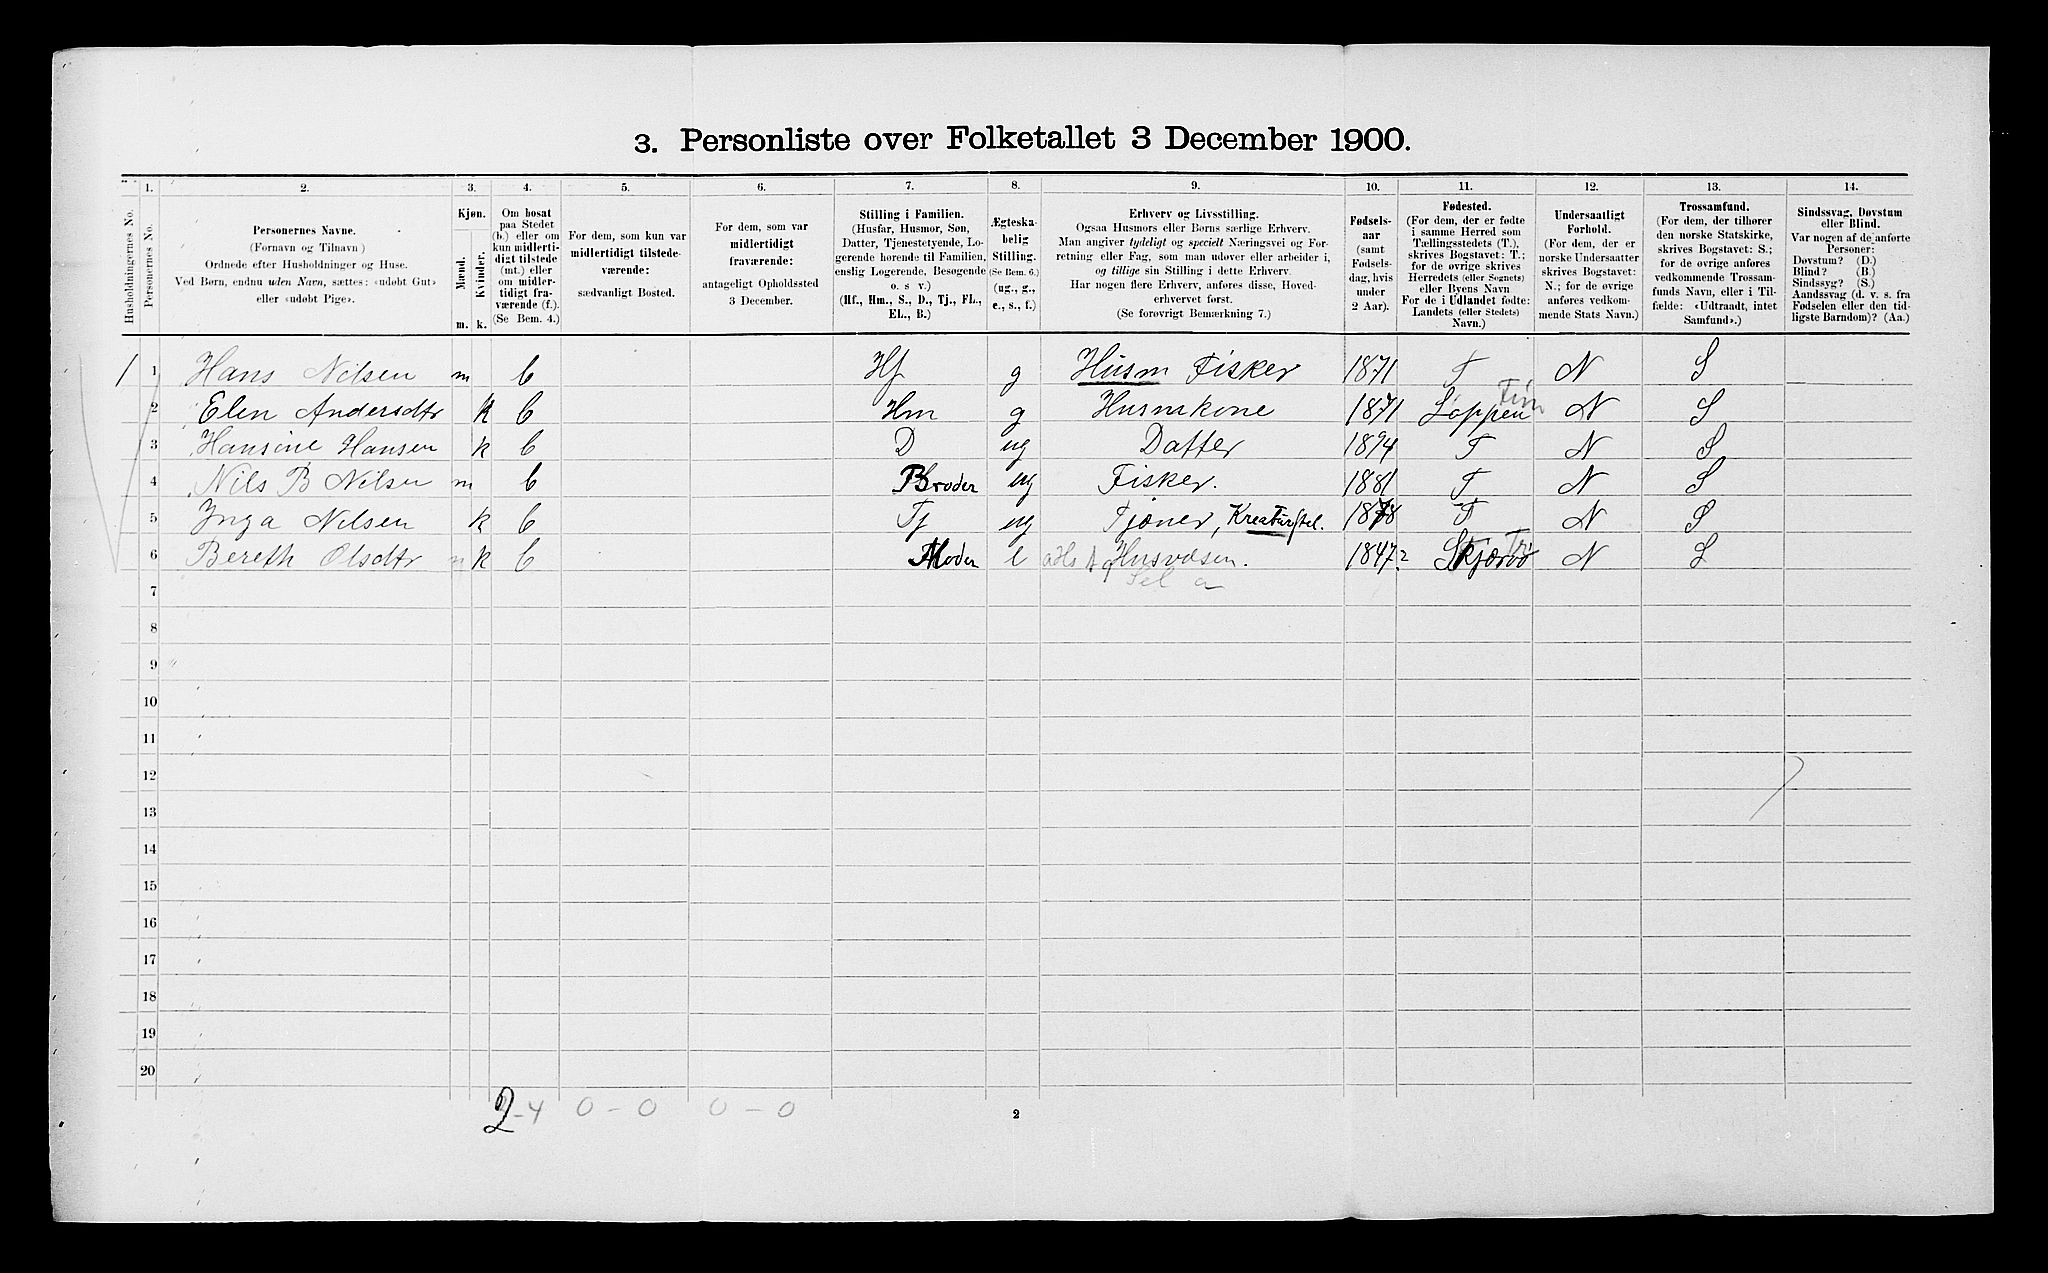 3. Personliste over Folketallet 3 December 1900.
1. 2. 3. 4. 5. 6. 7. 8. 9. 10. 11. 12. 13. 14.
Husholdningernes No.
Personernes No.
Personernes Navne.
(Fornavn og Tilnavn)
Ordnede efter Husholdninger og Huse.
Ved Børn, endnu uden Navn, sættes: «udøbt Gut»
eller «udøbt Pige».
Kjøn.
Mænd.
Kvinder.
m. k.
Om bosat
paa Stedet
(b.) eller om
kun midlerti-
digt tilstede
(mt.) eller
om midler-
tidigt fra-
værende (f.).
(Se Bem. 4.)
For dem, som kun var
midlertidigt tilstede-
værende:
sædvanligt Bosted.
For dem, som var
midlertidigt
fraværende:
antageligt Opholdssted
3 December.
Stilling i Familien.
(Husfar, Husmor, Søn,
Datter, Tjenestetyende, Lo-
gerende hørende til Familien,
enslig Logerende, Besøgende
o. s v.)
(Hf., Hm., S., D., Tj., FL.,
EL., B.)
Ægteska-
belig
Stilling.
(Se Bem. 6.)
(ug., g.,
e., s., f.)
Erhverv og Livsstilling.
Ogsaa Husmors eller Børns særlige Erhverv.
Man angiver tydeligt og specielt Næringsvei og For-
retning eller Fag, som man udøver eller arbeider i,
og tillige sin Stilling i dette Erhverv.
Har nogen flere Erhverv, anføres disse, Hoved-
erhvervet først.
(Se forøvrigt Bemærkning 7.)
Fødsels-
aar
(samt
Fødsels-
dag, hvis
under
2 Aar).
Fødested.
(For dem, der er fødte
i samme Herred som
Tællingsstedets (T.),
skrives Bogstavet: T.;
for de øvrige skrives
Herredets (eller Sognets)
eller Byens Navn
For de i Udlandet fødte:
Landets (eller Stedets)
Navn.)
Undersaatligt
Forhold.
(For dem, der er
norske Undersaatter
skrives Bogstavet:
N.; for de øvrige
anføres vedkom-
mende Stats Navn.)
Trossamfund.
(For dem, der tilhører
den norske Statskirke,
skrives Bogstavet: S.;
for de øvrige anføres
vedkommende Trossam-
funds Navn, eller i Til-
fælde: «Udtraadt, intet
Samfund».)
Sindssvag, Døvstum
eller Blind.
Var nogen af de anførte
Personer:
Døvstum? (D.)
Blind? (B.)
Sindssyg? (S.)
Aandssvag (d. v. s. fra
Fødselen eller den tid-
ligste Barndom)? (Aa.)
1 1 Hans Nilsen m b Hf g Husm Fisker 1871 T N S
2 Elen Andersdtr k b Hm g Husmkone 1871 Loppen Fin N S
3 Hansine Hansen k b D ug Datter 1894 T N S
4 Nils B Nilsen m b Broder ug Fisker. 1881 T N S
5 Inga Nilsen k b Tj ug Tjener, Kreaturstel. 1878 T N S
6 Bereth Olsdtr k b Moder e Husvæsen. 1847? Skjærvø Tr. N S
7
8
9
10
11
12
13
14
15
16
17
18
19
20
2-4 0-0 0-0
2